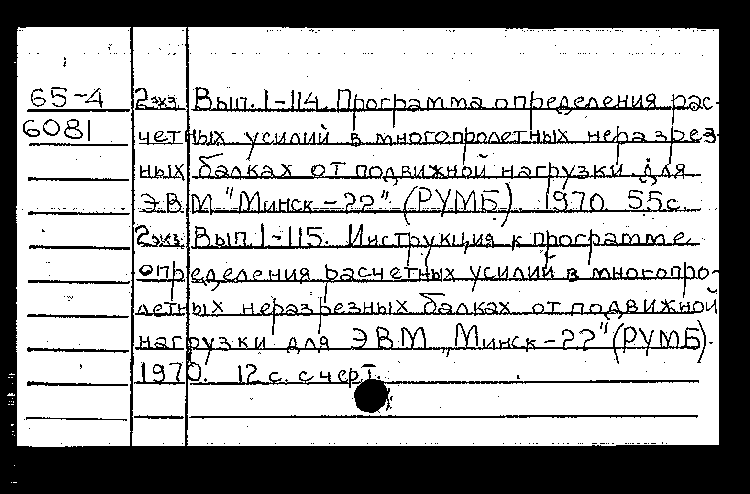 65-4 2экз. Вып. 1-114. Программа определения рас-
6081 четных усилий в многопролетных неразрез-
ных балках от подвижной нагрузки для
ЭВМ "Минск-22" (РУМБ). 1970. 55с.
2экз. Вып. 1-115. Инструкция к программе
определения расчетных усилий в многопро-
летных неразрезных балках от подвижной
нагрузки для ЭВМ „Минск-22" (РУМБ).
1970. 12 с. с черт.